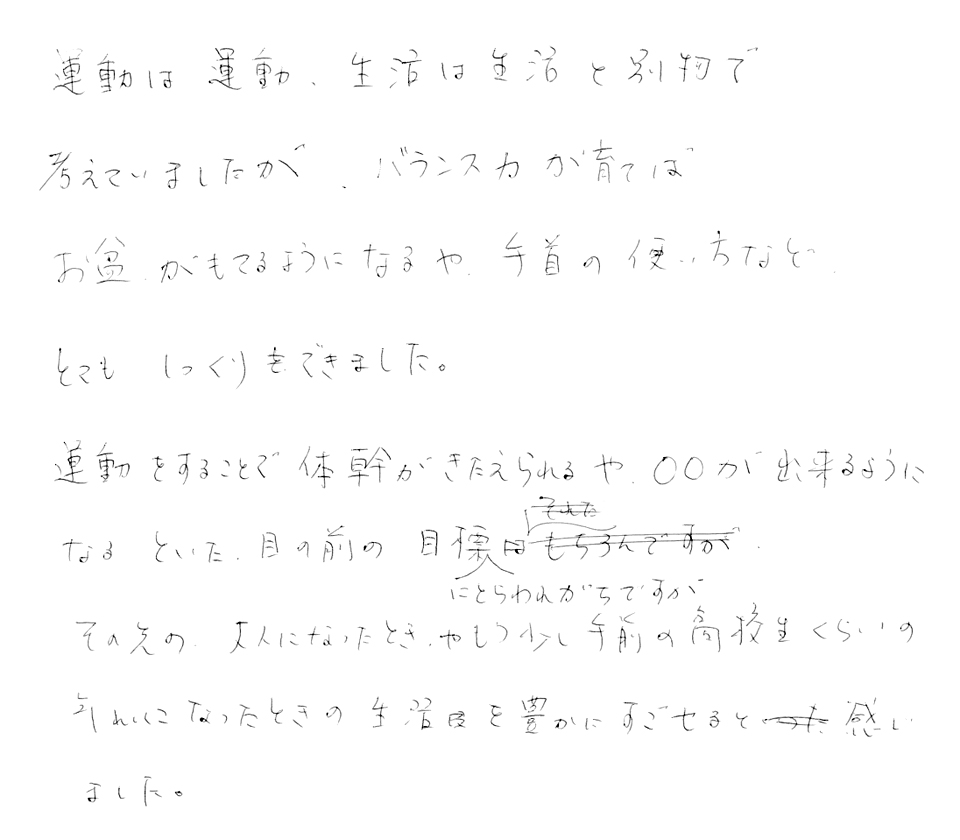 運動は運動、生活は生活と別物で
考えていましたが、バランス力が育てば
お盆がもてるようになるや、手首の使い方など、
とても しっくりもできました。
運動をすることで体幹がきたえられるや、〇〇が出来るように
なる といた、目の前の目標
にとらわれがちですが
その先の、大人になったとき、やもう少し手前の高校生くらいの
年れいになったときの生活を豊かにすごせると感じ
ました。